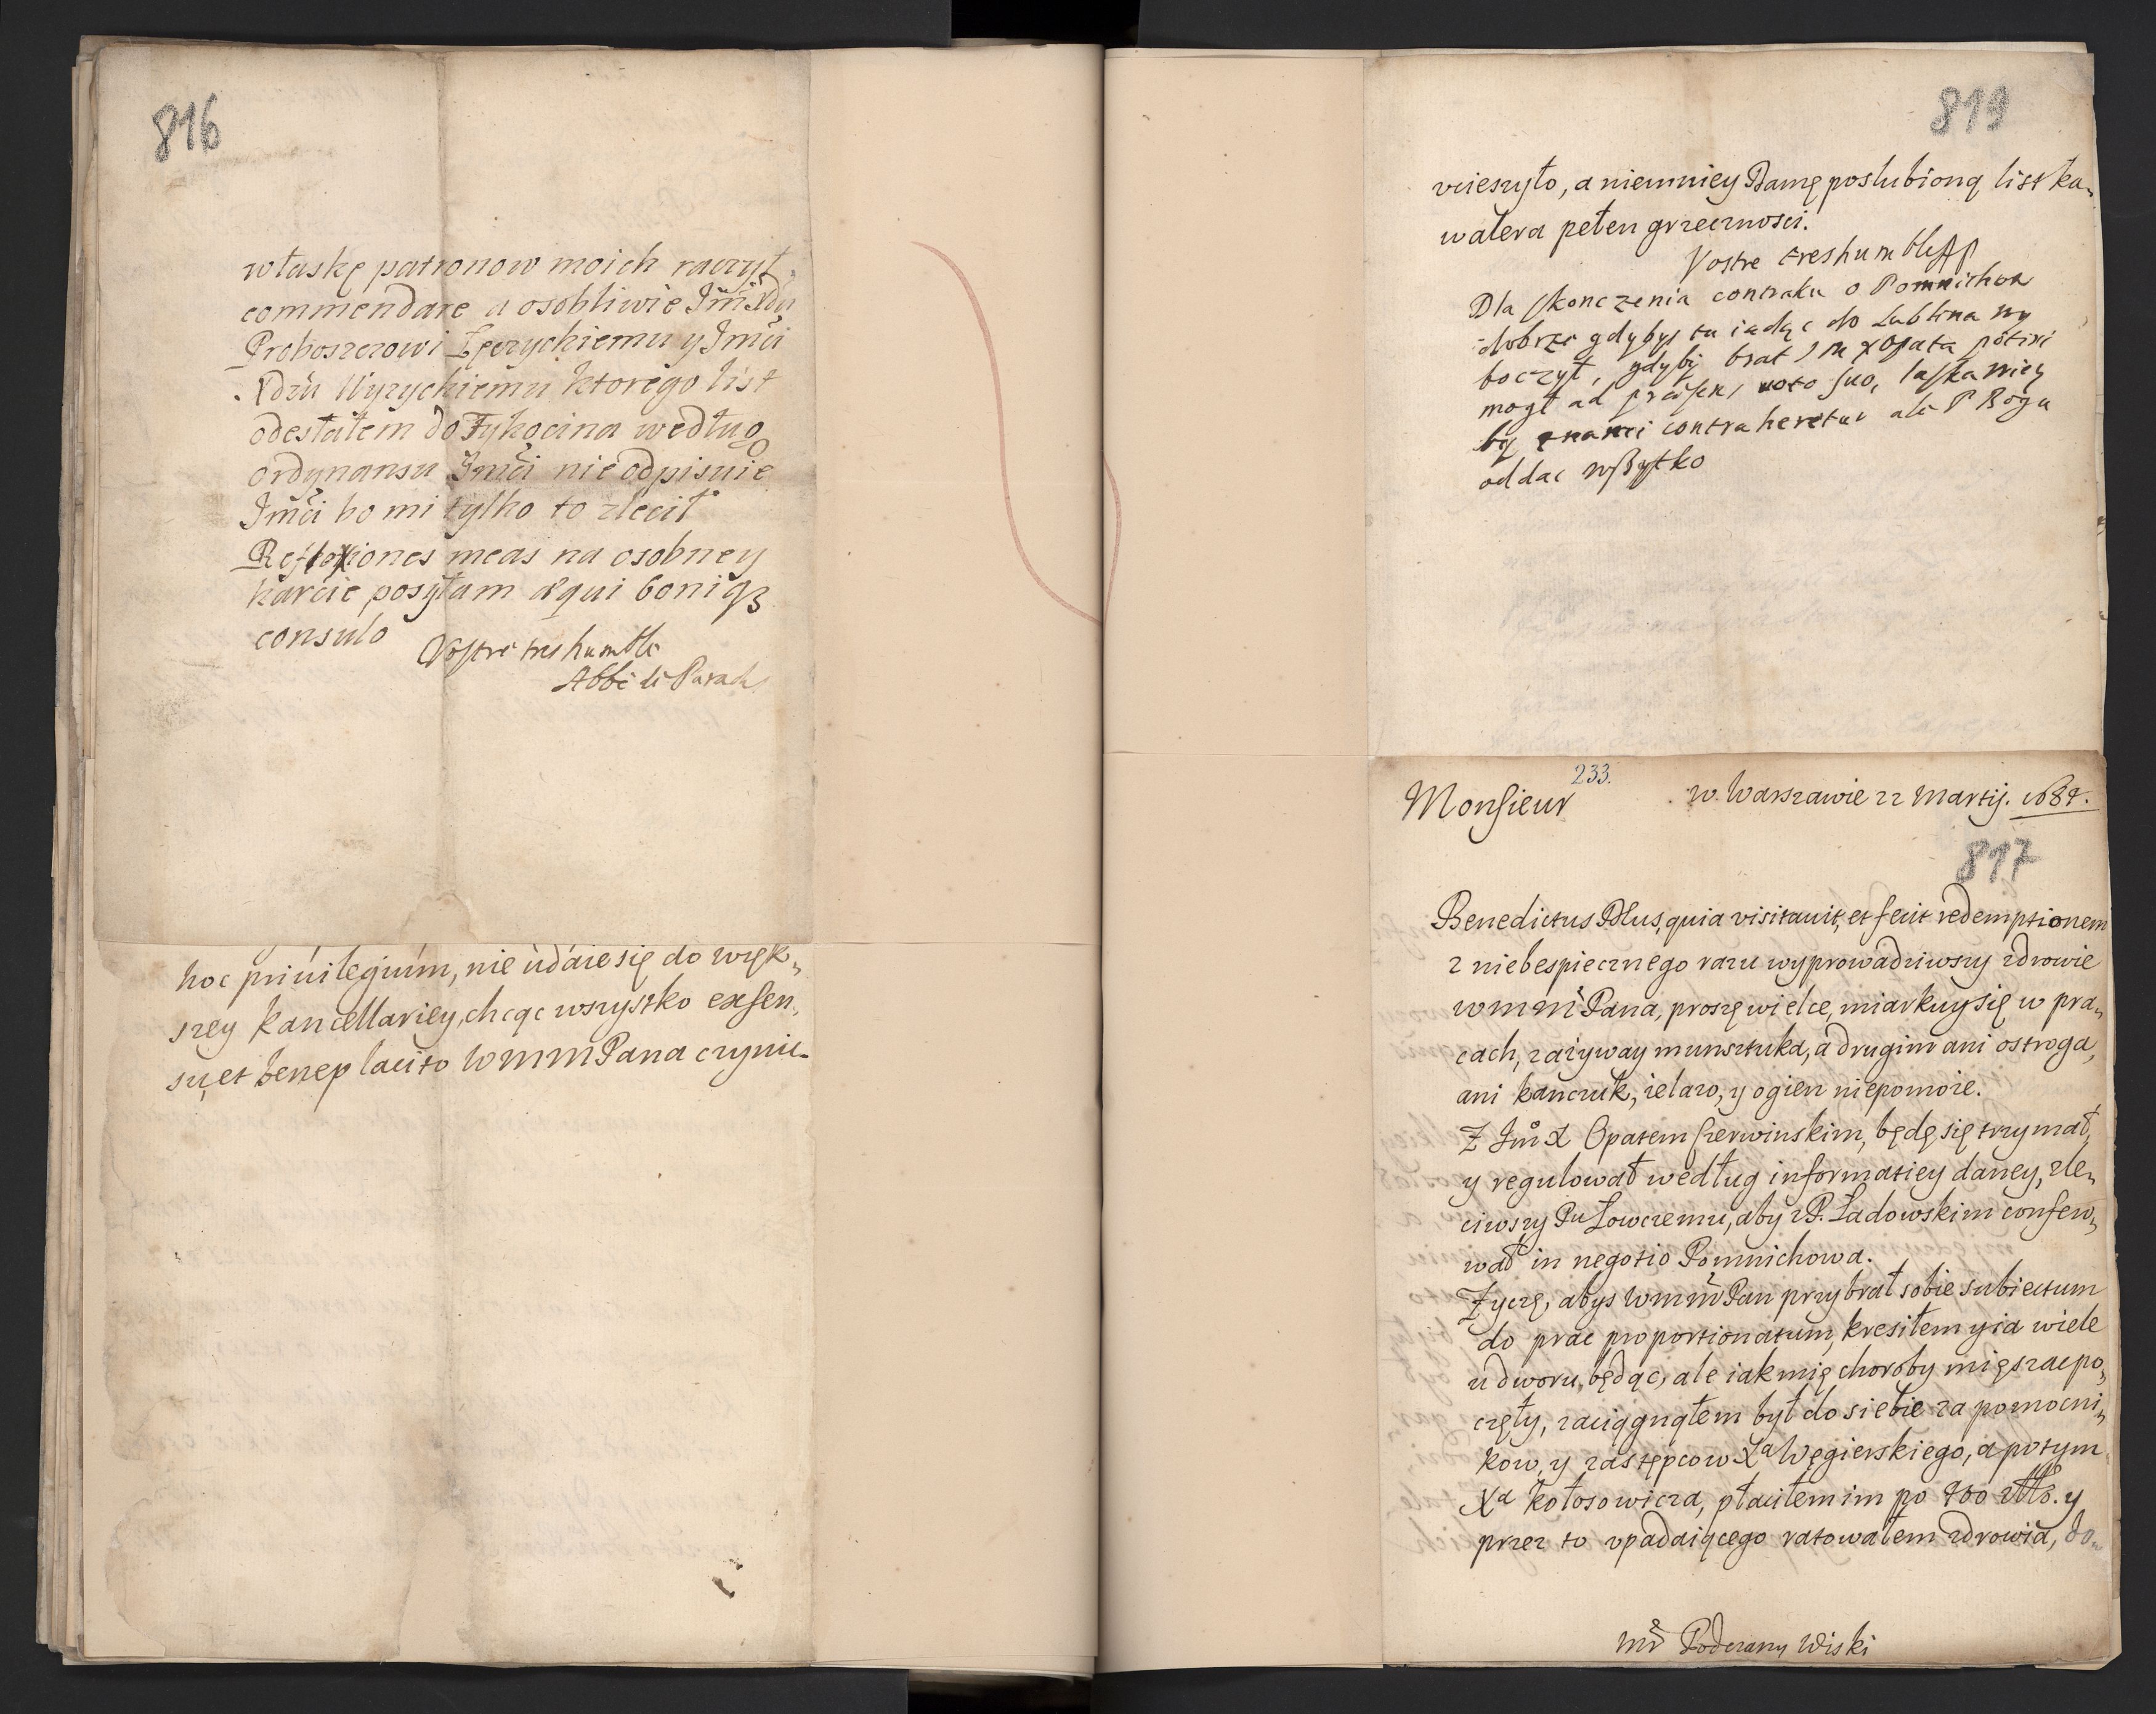 816
w łaskę patronow moich raczył
commendare a osobliwie Jmći Xdzu
Proboszczowi Łęczychiemu y Jmći
Xdzu Wyzychiemu ktorego list
odesłałem do Tykocina według
ordynansu Jmći nie odpisuie
Jmći bo mi tylko to zlecił
Reflexiones meas na osobney
karcie posyłam æqui boniqз
consulo
Vostre tres humble
Abbé de Parad
hoc priuilegium, nie udaie się do więk„
szey kancellariey, chcąc wszystko ex sen„
su, et beneplacito WMM Pana czynic.
819
vcieszyło, a niemniey Damę poslubioną list ka„
walera pełen grzecznosci.
Vostre treshumble
Dla skonczenia contraktu o Pomnichow
dobrze gdybys tu iadąc do Lublina wy
boczył, gdyby brat J M X Opata
mogł ad voto suo, łaskawiey
by contraheretur ale P Bogu
oddac wszytko
233.
Monsieur w. Warszawie 22 Martij. 1684.
817
Benedictus Dnus, quia visitauit, et fecit redemptionem
z niebespiecznego razu wyprowadziwszy zdrowie
WMM Pana, proszę wielce, miarkuy się w pra„
cach, zażyway munsztuka, a drugim ani ostroga,
ani kanczuk, żelazo, y ogien niepomoże.
Z Jm X Opatem Czerwinskim, będę się trzymał,
y regulował według informatiey daney, zle„
ciwszy Pu Łowczemu, aby z P. Ładowskim confero„
wał in negotio Pomnichowa.
Zyczę, abys WMM Pan przybrał sobie subiectum
do prac proportionatum, kresiłem y ia wiele
u dworu, będąc, ale iak mię choroby mięszac po„
częły, zaciągnąłem był do siebie za pomocni„
kow, y zastępcow Xa Węgierskiego, a potym
Xa Kołosowicza, płaciłem im po 400 y
przez to vpadaiącego ratowałem zdrowia, do„
Mr Podczaszy Wiski